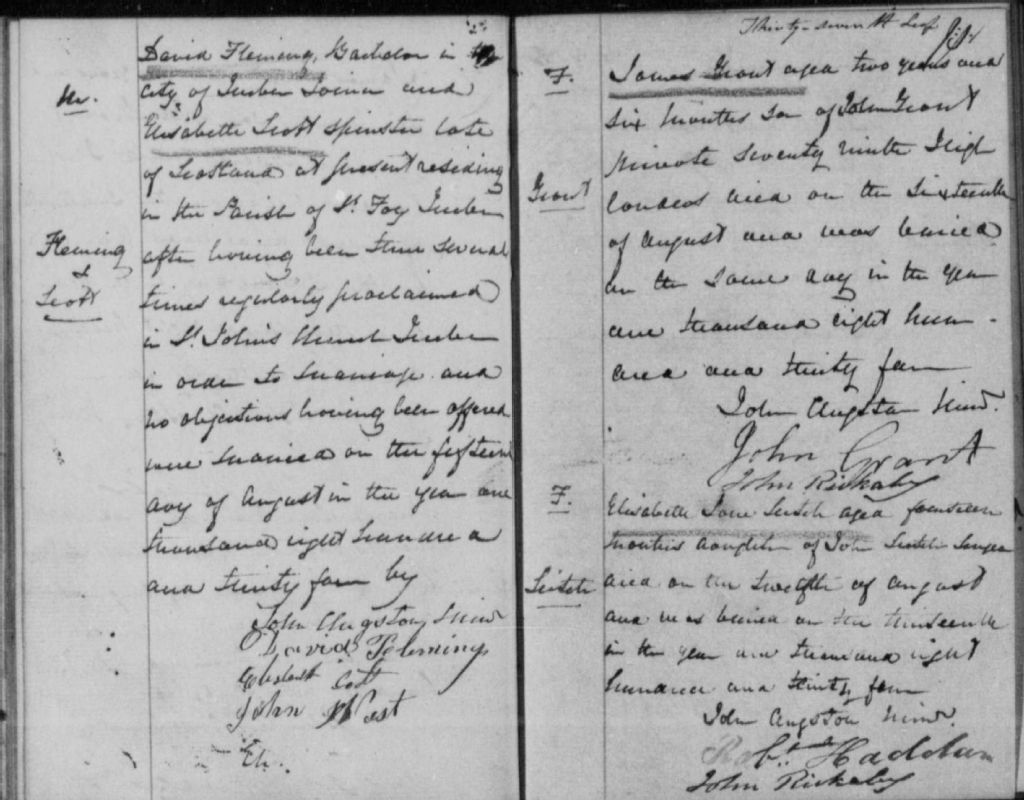 M.
David Fleming, Bachelor in the
city of Quebec Joiner and
Elisabeth Scott spinster late
of Scotland at present residing
in the Parish of St. Foy Quebec
after having been three several
times regularly proclaimed
in St. John's Church Quebec
in order to marriage and
no objections having been offered
were married on the fifteenth
day of August in the year one
thousand eight hundred
and thirty four by
Fleming
&
Scott
John Clugston, Minr
David Fleming
Scott
John West
Thirty-seventh Leaf
F.
Grant
James Grant aged two years and
six months son of John Grant
private seventy ninth High
landers died on the sixteenth
of August and was buried
on the same day in the year
one thousand eight hun-
dred and thirty four
John Clugston Minr.
John Grant
John Rickaby
F.
Leitch
Elisabeth Jane Leitch aged fourteen
months daughter of John Leitch
died on the twelfth of August
and was buried on the thirteenth
in the year one thousand eight
hundred and thirty four
John Clugston Minr.
Robt. Haddan
John Rickaby